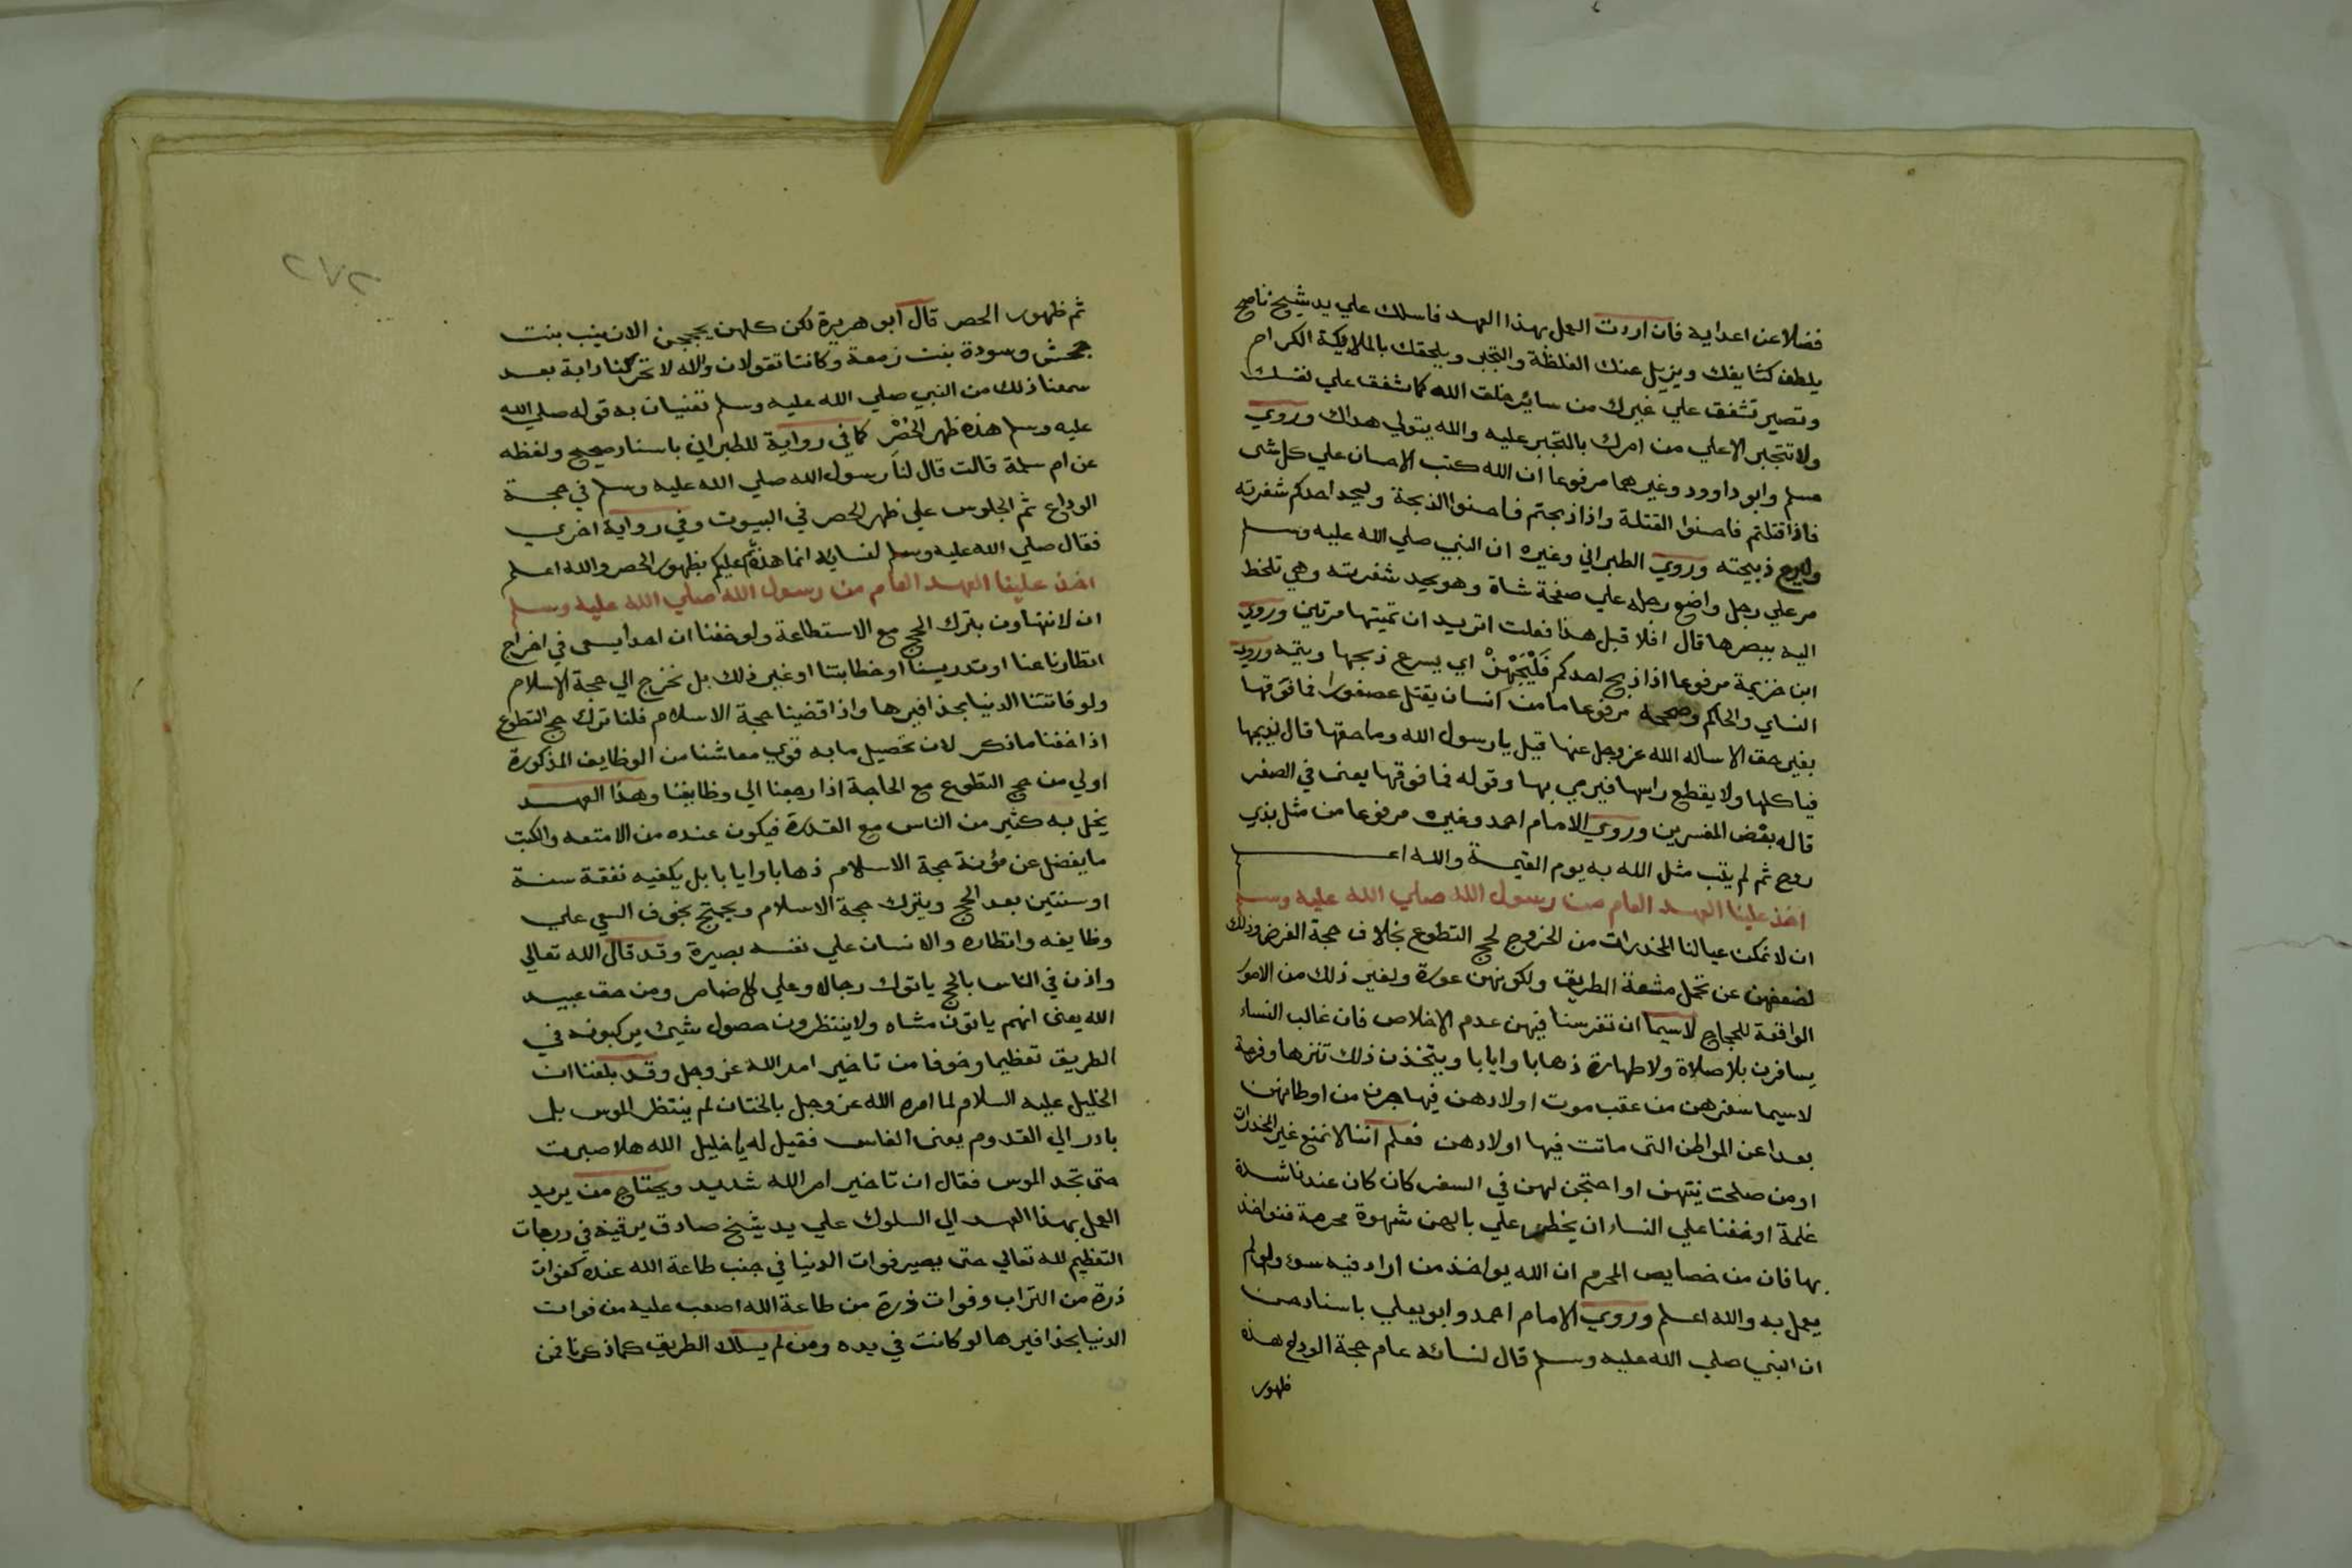 فضلا عن اعدايه فان اردت العمل بهذا العهد فاسلك علي يد شيخ ناصح
يلطف كثايفك ويزيل عنك الغلظة والتجبر ويلحقك بالملايكة الكرام
وتصير تشفق علي غيرك من ساير خلق الله كما تشفق علي نفسك
ولا تتجبر الا علي من امرك بالتجبر عليه والله يتولي هداك وروي
مسلم وابو داوود وغيرهما مرفوعا ان الله كتب الاحسان علي كل شى
فاذا قتلتم فاحسنوا القتلة واذا ذبحتم فاحسنوا الذبحة وليحد احدكم شفرته
وليرح ذبيحته وروي الطبراني وغيره ان النبي صلي الله عليه وسلم
مر علي رجل واضع رجله علي صفحة شاة وهو يحد شفرته وهي تلحظ
اليه ببصرها قال افلا قبل هذا فعلت اتريد ان تميتها مرتين وروي
ابن خزيمة مرفوعا اذا ذبح احدكم فَلْيُجَهِّزْ اي يسرع ذبحها ويتمه وروي
النساي والحاكم وصححه مرفوعا ما من انسان يقتل عصفورا فما فوقها
بغير حق الا ساله الله عز وجل عنها قيل يا رسول الله وما حقها قال يذبحها
فياكلها ولا يقطع راسها فيرمي بها وقوله فما فوقها يعني في الصغر
قاله بعض المفسرين وروي الامام احمد وغيره مرفوعا من مثل بذي
روح ثم لم يتب مثل الله به يوم القيمة والله اعلم
اخذ علينا العهد العام من رسول الله صلي الله عليه وسلم
ان لا نمكن عيالنا المخدرات من الخروج لحج التطوع بخلاف حجة الفرض وذلك
لضعفهن عن تحمل مشقة الطريق ولكونهن عورة ولغير ذلك من الامور
الواقعة للحجاج لاسيما ان تفرسنا فيهن عدم الاخلاص فان غالب النساء
يسافرن بلا صلاة ولا طهارة ذهابا وايابا ويتخذن ذلك تنزها وفرجة
لاسيما سفرهن من عقب موت اولادهن فيهاجرن من اوطانهن
بعدا عن المواطن التى ماتت فيها اولادهن فعلم اننا لا نمنع غير المخدرات
او من صلحت نيتهن او احتجن لهن في السفر كان كان عندنا شدة
غلمة او خفنا علي النساء ان يخطر علي بالهن شهوة محرمة فنواخذ
بها فان من خصايص الحرم ان الله يواخذ من اراد فيه سوء ولو لم
يعمل به والله اعلم وروي الامام احمد وابو يعلي باسناد حسن
ان النبي صلي الله عليه وسلم قال لنسائه عام حجة الوداع هذه
ظهور
٢٧٢
ثم ظهور الحصر قال ابو هريرة لكن كلهن يحججن الا زينب بنت
جحش وسودة بنت زمعة وكانتا تقولان والله لا تحركنا دابة بعد
سمعنا ذلك من النبي صلي الله عليه وسلم تعنيان به قوله صلي الله
عليه وسلم هذه ظهر الحُصْرِ كما في رواية للطبراني باسناد صحيح ولفظه
عن ام سلمة قالت قال لنا رسول الله صلي الله عليه وسلم في حجة
الوداع ثم الجلوس علي ظهر الحصر في البيوت وفي رواية اخري
فقال صلي الله عليه وسلم لنسايه انما هذه ثم عليكم بظهور الحصر والله اعلم
اخذ علينا العهد العام من رسول الله صلي الله عليه وسلم
ان لا نتهاون بترك الحج مع الاستطاعة ولو خفنا ان احدا يسعى في اخراج
انظارنا عنا او تدريسنا او خطابتنا او غير ذلك بل نخرج الي حجة الاسلام
ولو فاتتنا الدنيا بحذافيرها واذا قضينا حجة الاسلام فلنا ترك حج التطوع
اذا خفنا ما ذكر لان تحصيل ما به قوت معاشنا من الوظايف المذكورة
اولي من حج التطوع مع الحاجة اذا رجعنا الي وظايفنا وهذا العهد
يخل به كثير من الناس مع القدرة فيكون عنده من الامتعه والكتب
ما يفضل عن مؤنة حجة الاسلام ذهابا وايابا بل يكفيه نفقة سنة
او سنتين بعد الحج ويترك حجة الاسلام ويحتج بخوف السعي علي
وظايفه وانظاره والانسان علي نفسه بصيرة وقد قال الله تعالي
واذن في الناس بالحج ياتوك رجالا وعلي كل ضامر ومن حق عبيد
الله يعنى انهم ياتون مشاه ولا ينتظرون حصول شيئ يركبونه في
الطريق تعظيما وخوفا من تاخير امر الله عز وجل وقد بلغنا ان
الخليل عليه السلام لما امره الله عز وجل بالختان لم ينتظر الموس بل
بادر الي القدوم يعنى الفاس فقيل له يا خليل الله هلا صبرت
حتى تجد الموس فقال ان تاخير امر الله شديد ويحتاج من يريد
العمل بهذا العهد الي السلوك علي يد شيخ صادق يرقيه في درجات
التعظيم لله تعالي حتى يصير فوات الدنيا في جنب طاعة الله عنده كفوات
ذرة من التراب وفوات ذرة من طاعة الله اصعب عليه من فوات
الدنيا بحذافيرها لو كانت في يده ومن لم يسلك الطريق كما ذكرنا فمن